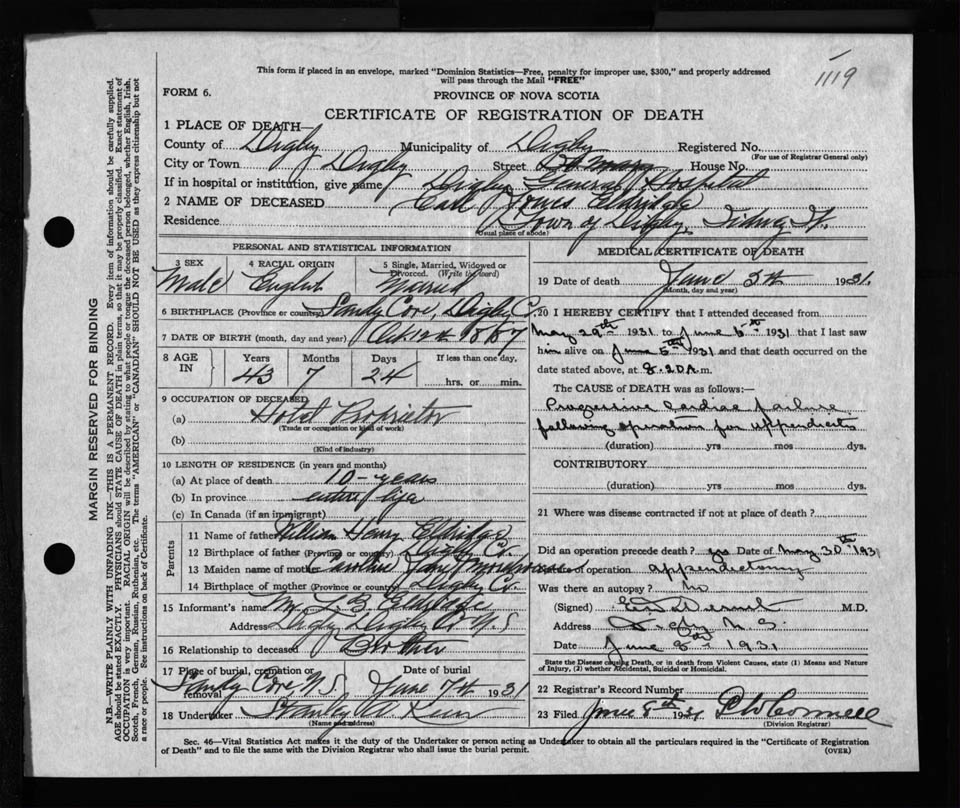 1119
This form if placed in an envelope, marked "Dominion Statistics—Free, penalty for improper use, $300," and properly addressed
will pass through the Mail "FREE"
FORM 6.
PROVINCE OF NOVA SCOTIA
CERTIFICATE OF REGISTRATION OF DEATH
1 PLACE OF DEATH—
County of Digby Municipality of Digby Registered No.
(For use of Registrar General only)
City or Town Digby Street St Mary House No.
If in hospital or institution, give name Digby General Hospital
2 NAME OF DECEASED Carl Jones Eldridge
Residence Town of Digby, Sidney St.
(Usual place of abode)
PERSONAL AND STATISTICAL INFORMATION
3 SEX 4 RACIAL ORIGIN 5 Single, Married, Widowed or Divorced. (Write the word)
Male English Married
6 BIRTHPLACE (Province or country) Sandy Cove, Digby C.
7 DATE OF BIRTH (month, day and year) Oct 12th 1887
8 AGE IN Years Months Days If less than one day,
43 7 24 hrs. or min.
9 OCCUPATION OF DECEASED
(a) Hotel Proprietor
(Trade or occupation or kind of work)
(b)
(Kind of industry)
10 LENGTH OF RESIDENCE (in years and months)
(a) At place of death 10-years
(b) In province entire life
(c) In Canada (if an immigrant)
Parents
11 Name of father William Henry Eldridge
12 Birthplace of father (Province or country) Digby Co.
13 Maiden name of mother Jane
14 Birthplace of mother (Province or country) Digby Co.
15 Informant's name Eldridge
Address Digby Digby Co N.S
16 Relationship to deceased Brother
17 Place of burial, cremation or removal Date of burial
Sandy Cove N.S. June 7th 1931
18 Undertaker Stanley A
(Name and address)
MEDICAL CERTIFICATE OF DEATH
19 Date of death June 5th 1931.
(Month, day and year)
20 I HEREBY CERTIFY that I attended deceased from
May 29th 1931 to June 5th 1931 that I last saw
him alive on June 5th 1931 and that death occurred on the
date stated above, at 8.20 A.m.
The CAUSE of DEATH was as follows:—
Progressive cardiac failure
following operation for appendicitis
(duration) yrs mos dys.
CONTRIBUTORY
(duration) yrs. mos. dys.
21 Where was disease contracted if not at place of death?
Did an operation precede death? yes Date of May 30th 1931
Nature of operation appendictomy
Was there an autopsy? No
(Signed) M.D.
Address Digby N.S.
Date June 8th 1931
State the Disease causing Death, or in death from Violent Causes, state (1) Means and Nature
of Injury, (2) whether Accidental, Suicidal or Homicidal.
22 Registrar's Record Number
23 Filed June 8th 1931
(Division Registrar)
Sec. 46—Vital Statistics Act makes it the duty of the Undertaker or Person acting as Undertaker to obtain all the particulars required in the "Certificate of Registration
of Death" and to file the same with the Division Registrar who shall issue the burial permit. (OVER)
MARGIN RESERVED FOR BINDING
N.B.—WRITE PLAINLY WITH UNFADING INK—THIS IS A PERMANENT RECORD. Every item of information should be carefully supplied.
AGE should be stated EXACTLY. PHYSICIANS should STATE CAUSE OF DEATH in plain terms, so that it may be properly classified. Exact statement of
OCCUPATION is very important. RACIAL ORIGIN will be described by stating to what people or tongue the deceased person belonged, whether English, Irish,
Scotch, French, German, Russian, Ruthenian, etc. The terms "AMERICAN" or "CANADIAN" SHOULD NOT BE USED as they express citizenship but not
a race or people. See instructions on back of Certificate.